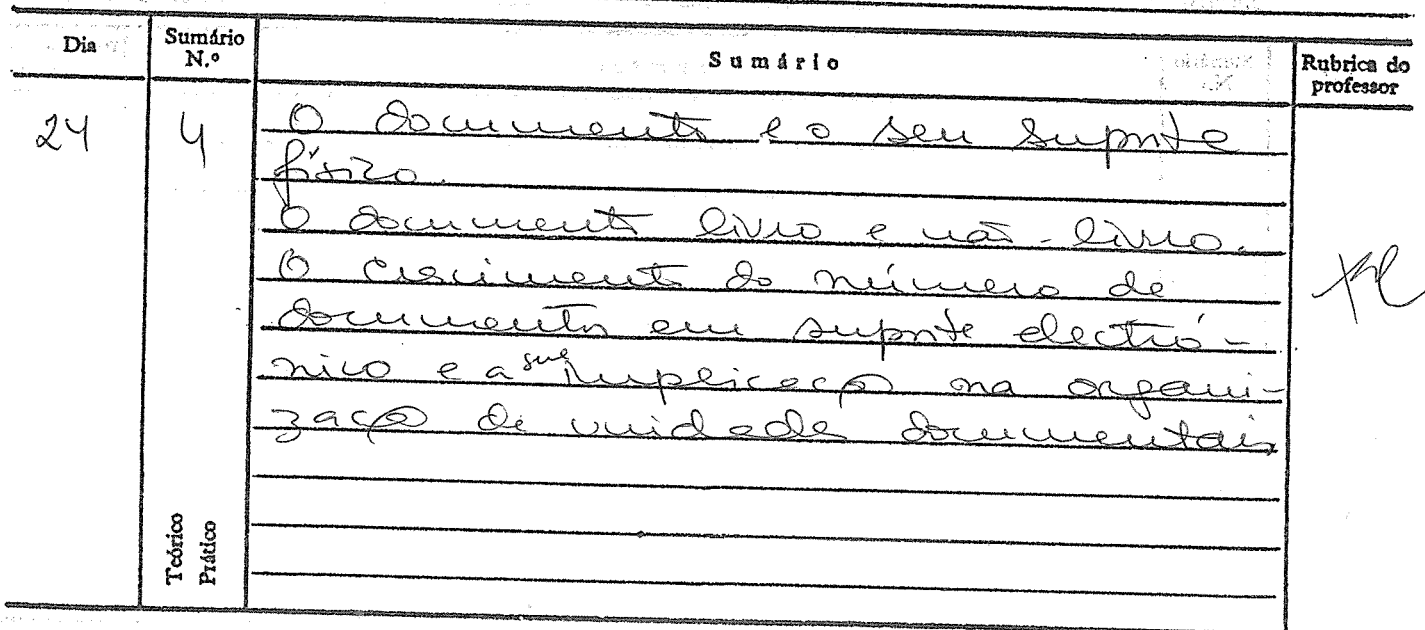 Dia
Sumário N.º
Sumário
Rubrica do professor
24
4
O documento e o seu suporte
físico.
O documento livro e não-livro.
O crescimento do número de
documentos em suporte electró-
nico e a sua implicação na organi-
zação de unidades documentais
Teórico
Prático